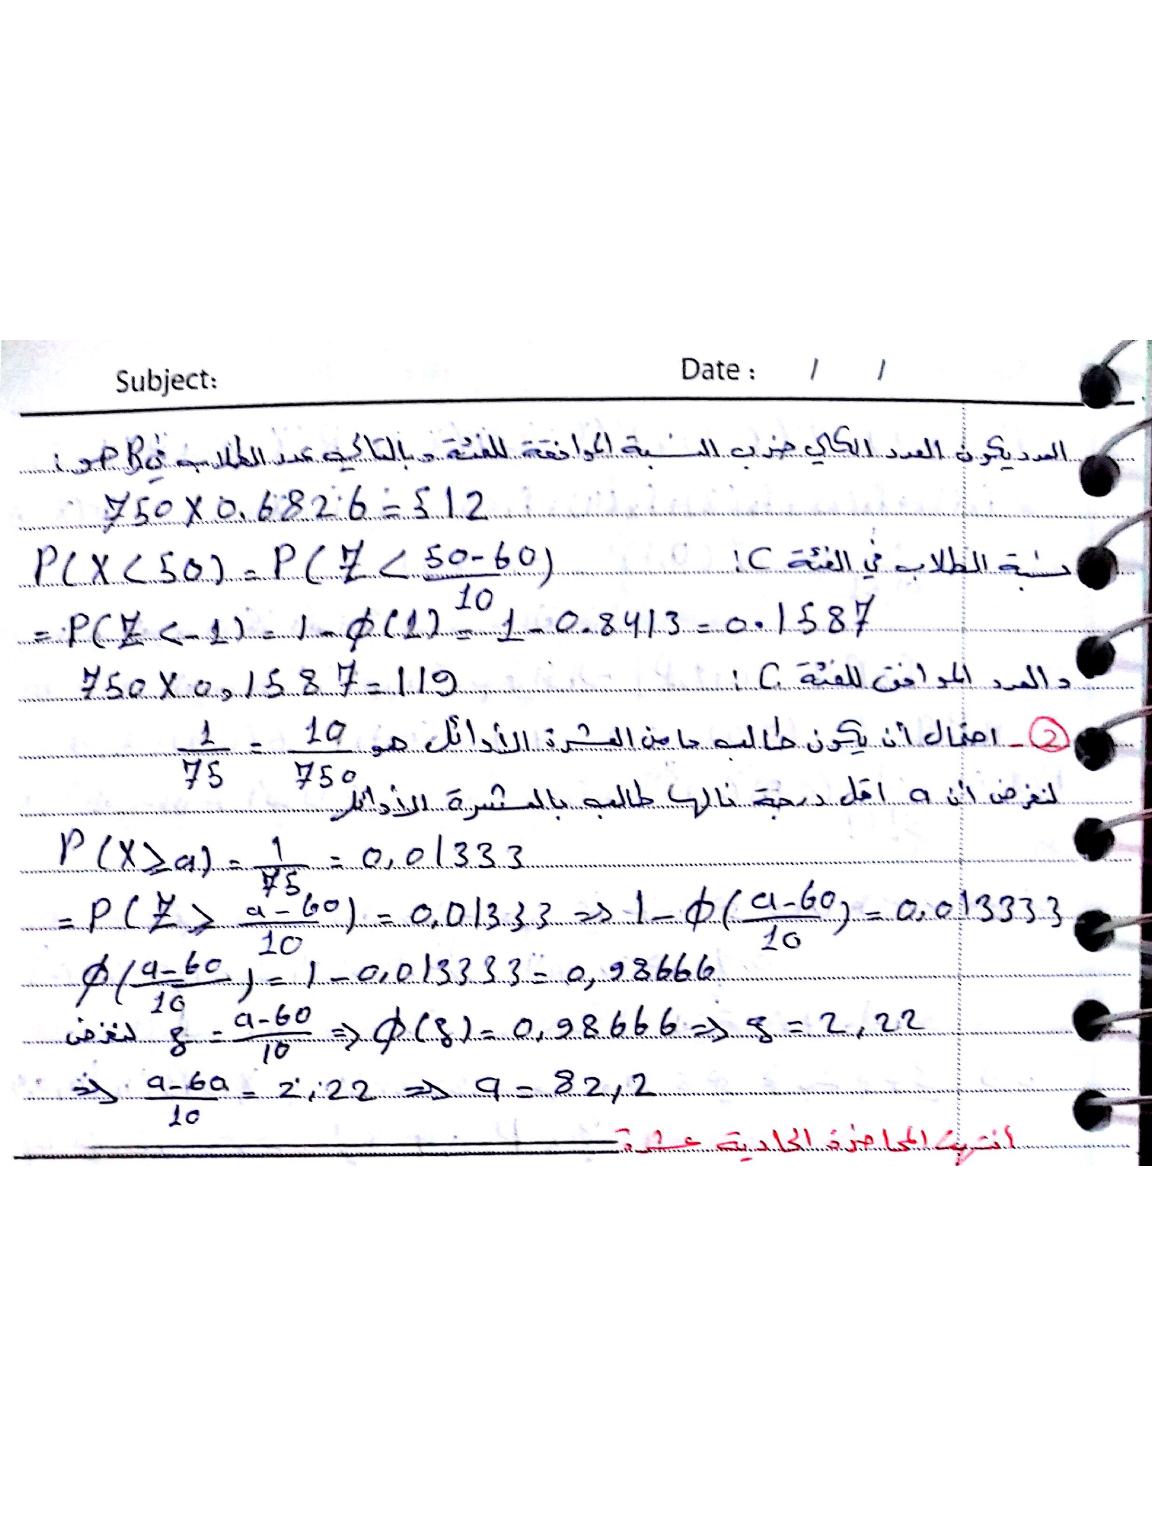 Subject: Date : / /
العدد يكون العدد الكلي ضرب النسبة الموافقة للفئة وبالتالي عدد الطلاب في B هو :
750 X 0.6826 = 512
نسبة الطلاب في الفئة C :
P(X < 50) = P(Z < \frac{50-60}{10})
= P(Z < -1) = 1 - ϕ(1) = 1 - 0.8413 = 0.1587
و العدد الموافق للفئة C : 750 X 0,1587 = 119
② - احتمال أن يكون طالب ما من العشرة الأوائل هو \frac{10}{750} = \frac{1}{75}
لنفرض أن a اقل درجة نالها طالب بالعشرة الأوائل
P(X ≥ a) = \frac{1}{75} = 0,01333
= P(Z ≥ \frac{a-60}{10}) = 0,01333 ⇒ 1 - ϕ(\frac{a-60}{10}) = 0,013333
ϕ(\frac{a-60}{10}) = 1 - 0,013333 = 0,98666
لنفرض z = \frac{a-60}{10} ⇒ ϕ(z) = 0,98666 ⇒ z = 2,22
⇒ \frac{a-60}{10} = 2,22 ⇒ a = 82,2
انتهت المحاضرة الحادية عشرة